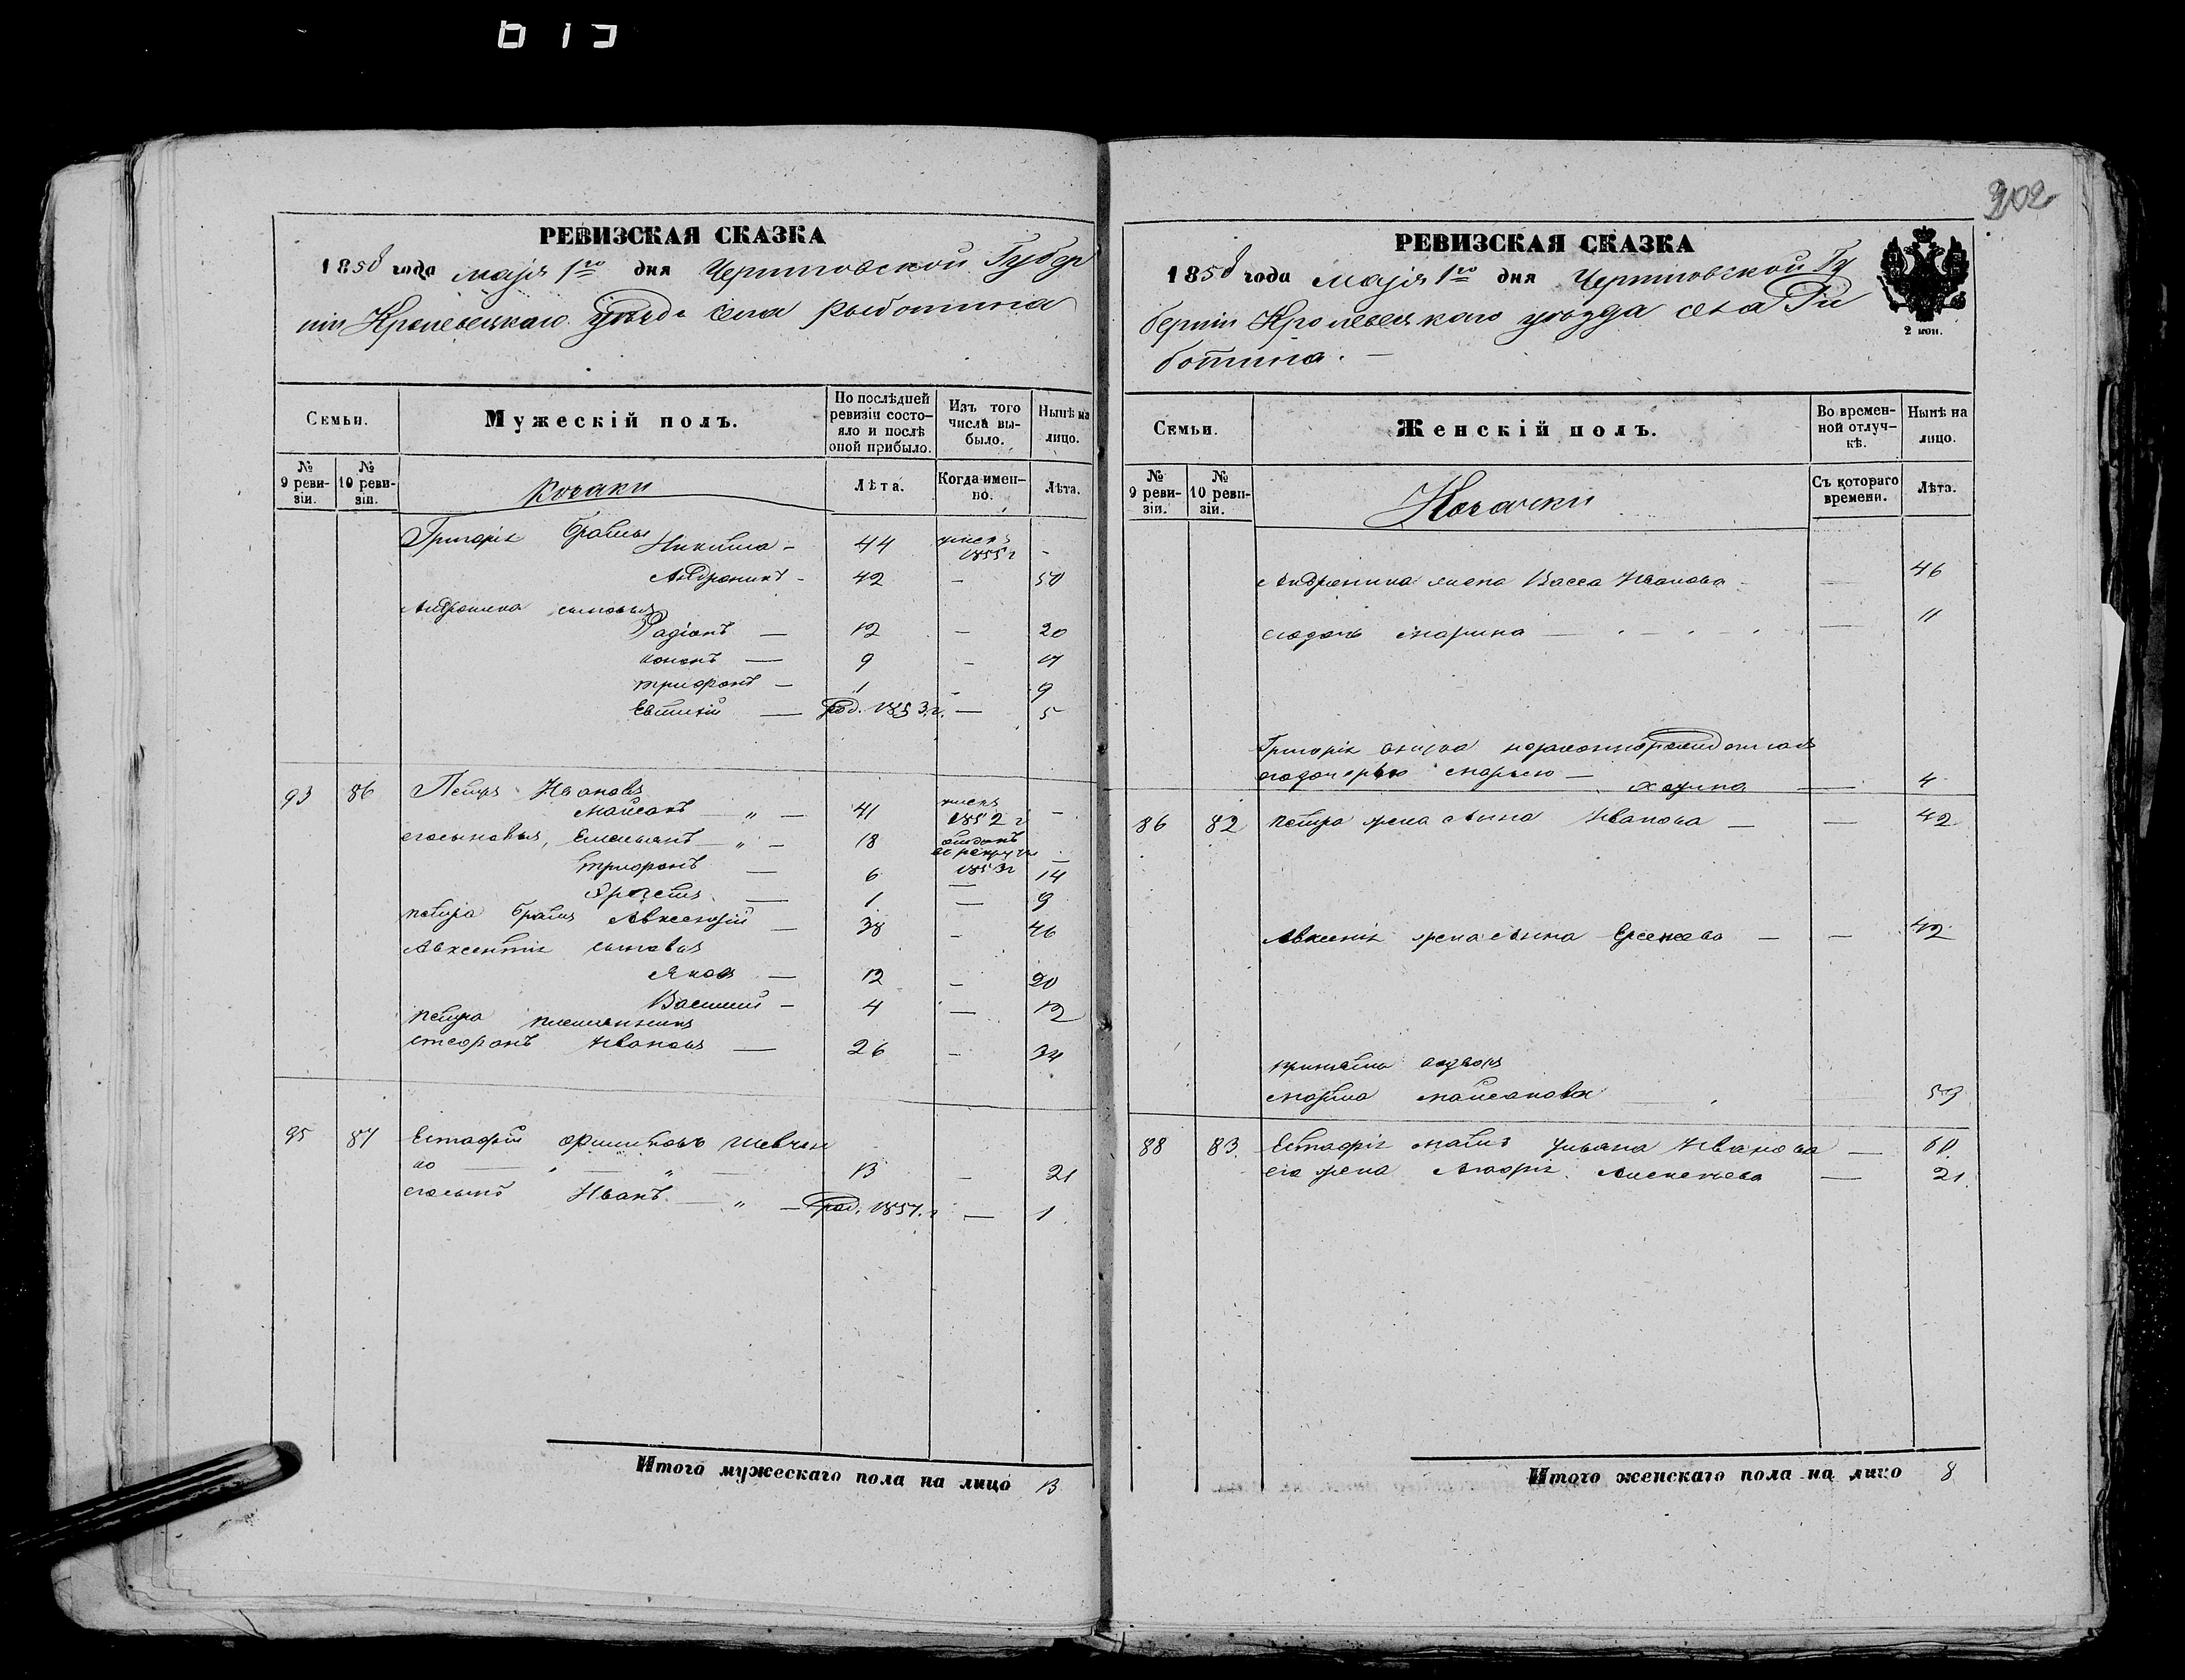 202
РЕВИЗСКАЯ СКАЗКА
1858 года маія 1го дня Черниговской Губер
ніи Кролевецкаго уезда села Рыботина
Семьи.
Мужескій полъ.
По послѣдней ревизіи состо-
яло и послѣ оной прибыло.
Изъ того числа вы-
было.
Ныне на лицо.
№ 9 реви-
зіи.
№ 10 реви-
зіи.
Козаки
Лѣта.
Когда имен-
но.
Лѣта.
Григорія братья Никита - 44 1855 г -
Андроникъ - 42 - 50
Андроника сыновья
Радіонъ — 12 - 20
Кононъ — 9 - 17
Трифонъ — 1 - 9
Евтихій — род. 1853 г. — 5
93 86 Петръ Ивановъ
Майсакъ „ — 41 1852 г -
его сыновья, Емельянъ „ - 18 отданъ въ рекруты 1853 г —
Трифонъ — 6 — 14
— 1 — 9
Петра братъ Авксентій — 38 - 46
Авксентія сыновья
Яковъ — 12 - 20
Василій - 4 — 12
Петра племянникъ
Стефанъ Ивановъ — 26 - 34
95 87 Естафій Филиповъ Шевчен
ко — „ — 13 - 21
его сынъ Иванъ — „ — род. 1857 г — 1
Итого мужескаго пола на лицо 13
РЕВИЗСКАЯ СКАЗКА
1858 года маія 1го дня Черниговской Гу
берніи Кролевецкаго уезда села Ри
ботина. —
2 коп.
Семьи.
Женскій полъ.
Во времен-
ной отлуч-
кѣ.
Нынѣ на лицо.
№ 9 реви-
зіи.
№ 10 реви-
зіи.
Козачки
Съ котораго времени.
Лѣта.
Андроника жена Васса Иванова — 46
его дочь Марина — 11
Григорія внука незаконнорожденная
его дочерью Марьею —
— 4
86 82 Петра жена Анна Иванова — — 42
Авксентія жена Анна — — 42
вдова
Майсакова 59
88 83. Естафія мать Ульяна Иванова — 60.
его жена Алексеева — 21.
Итого женскаго пола на лицо 8